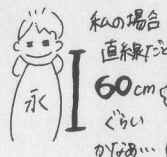 私の場合
直線だと
60cm
ぐらい
かなぁ…
永